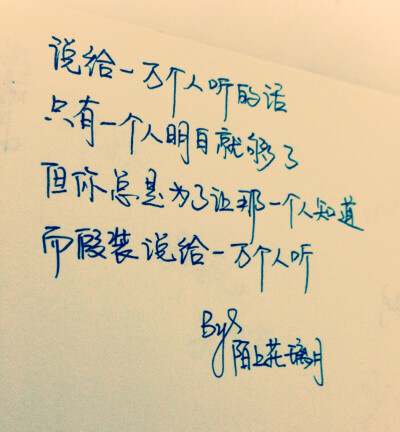 说给一万个人听的话
只有一个人明白就够了
但你总是为了让那一个人知道
而假装说给一万个人听
By 陌上花璃月